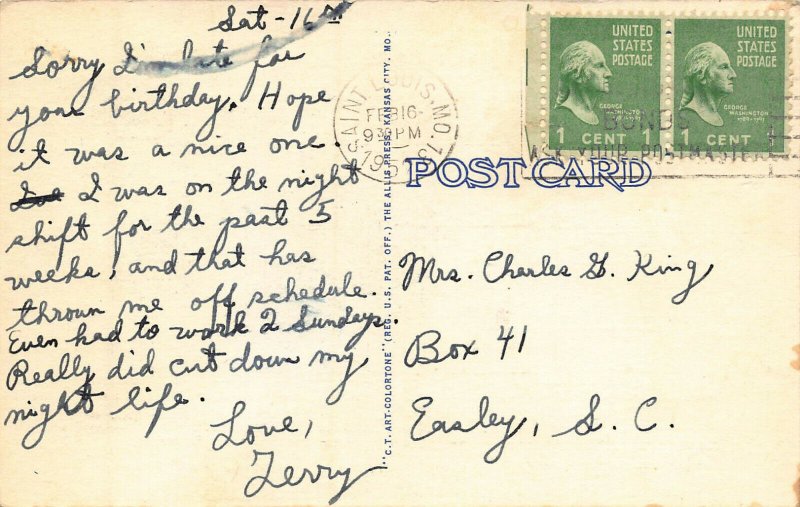 Sat-16th
Sorry I'm late for
your birthday. Hope
it was a nice one.
I was on the night
shift for the past 5
weeks, and that has
thrown me off schedule.
Even had to work 2 Sundays.
Really did cut down my
night life.
Love,
Terry
"C.T. ART-COLORTONE" (REG. U.S. PAT. OFF.) THE ALLIS PRESS, KANSAS CITY, MO.
SAINT LOUIS, MO.
FEB 16
9 30 PM
195
UNITED
STATES
POSTAGE
GEORGE
WASHINGTON
1 CENT 1
UNITED
STATES
POSTAGE
GEORGE
WASHINGTON
1 CENT 1
BONDS
ASK YOUR POSTMASTER
POST CARD
Mrs. Charles G. King
Box 41
Easley, S. C.